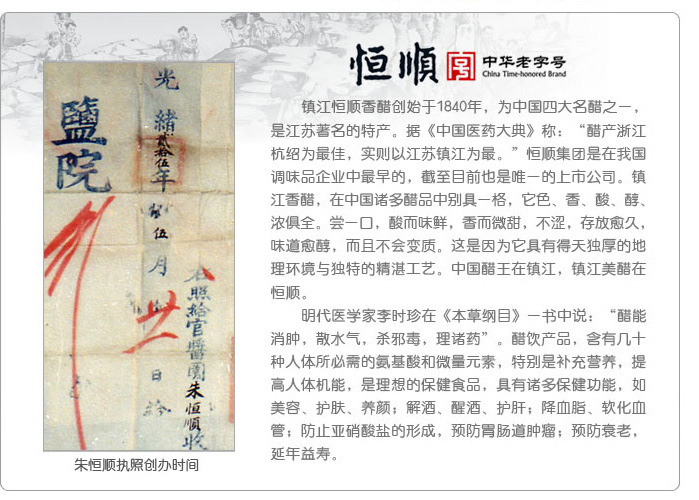 恒順
中华老字号
China Time-honored Brand
镇江恒顺香醋创始于1840年，为中国四大名醋之一，
是江苏著名的特产。据《中国医药大典》称：“醋产浙江
杭绍为最佳，实则以江苏镇江为最。”恒顺集团是在我国
调味品企业中最早的，截至目前也是唯一的上市公司。镇
江香醋，在中国诸多醋品中别具一格，它色、香、酸、醇、
浓俱全。尝一口，酸而味鲜，香而微甜，不涩，存放愈久，
味道愈醇，而且不会变质。这是因为它具有得天独厚的地
理环境与独特的精湛工艺。中国醋王在镇江，镇江美醋在
恒顺。
明代医学家李时珍在《本草纲目》一书中说：“醋能
消肿，散水气，杀邪毒，理诸药”。醋饮产品，含有几十
种人体所必需的氨基酸和微量元素，特别是补充营养，提
高人体机能，是理想的保健食品，具有诸多保健功能，如
美容、护肤、养颜；解酒、醒酒、护肝；降血脂、软化血
管；防止亚硝酸盐的形成，预防胃肠道肿瘤；预防衰老，
延年益寿。
鹽院
光緒貳拾伍年
伍月
廿
日
右照給官醬園朱恒順收
朱恒顺执照创办时间